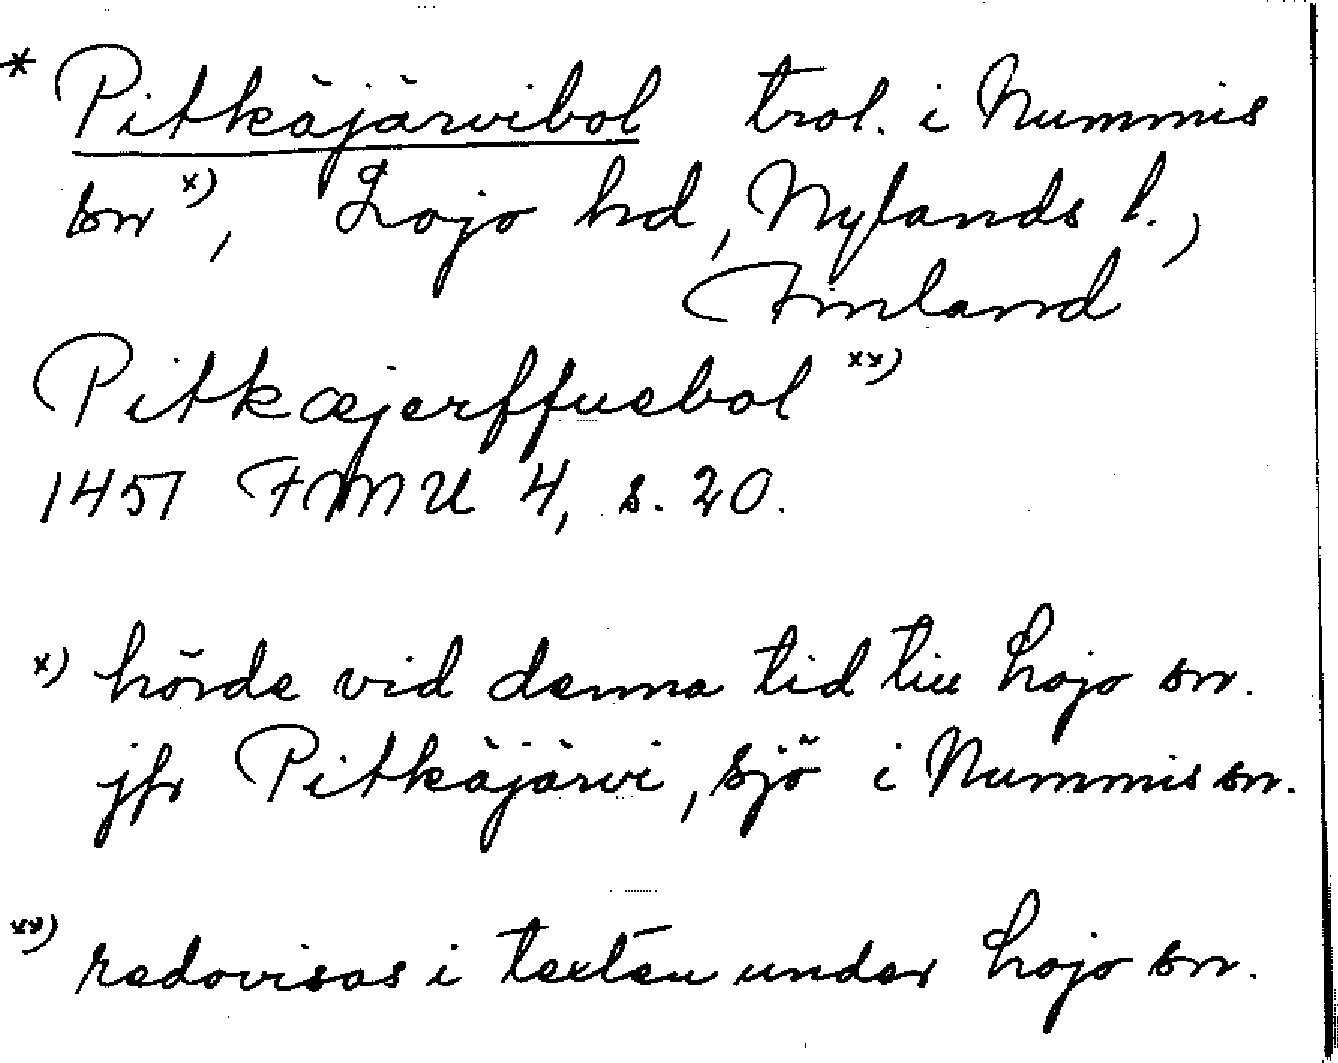 * Pitkäjärvibol trol. i Nummis
sn x), Lojo hd, Nylands l.,
Finland
Pitkæjerffuebol xx)
1451 FMU 4, s. 20.
x) hörde vid denna tid till Lojo sn.
jfr Pitkäjärvi, sjö i Nummis sn.
xx) redovisas i texten under Lojo sn.